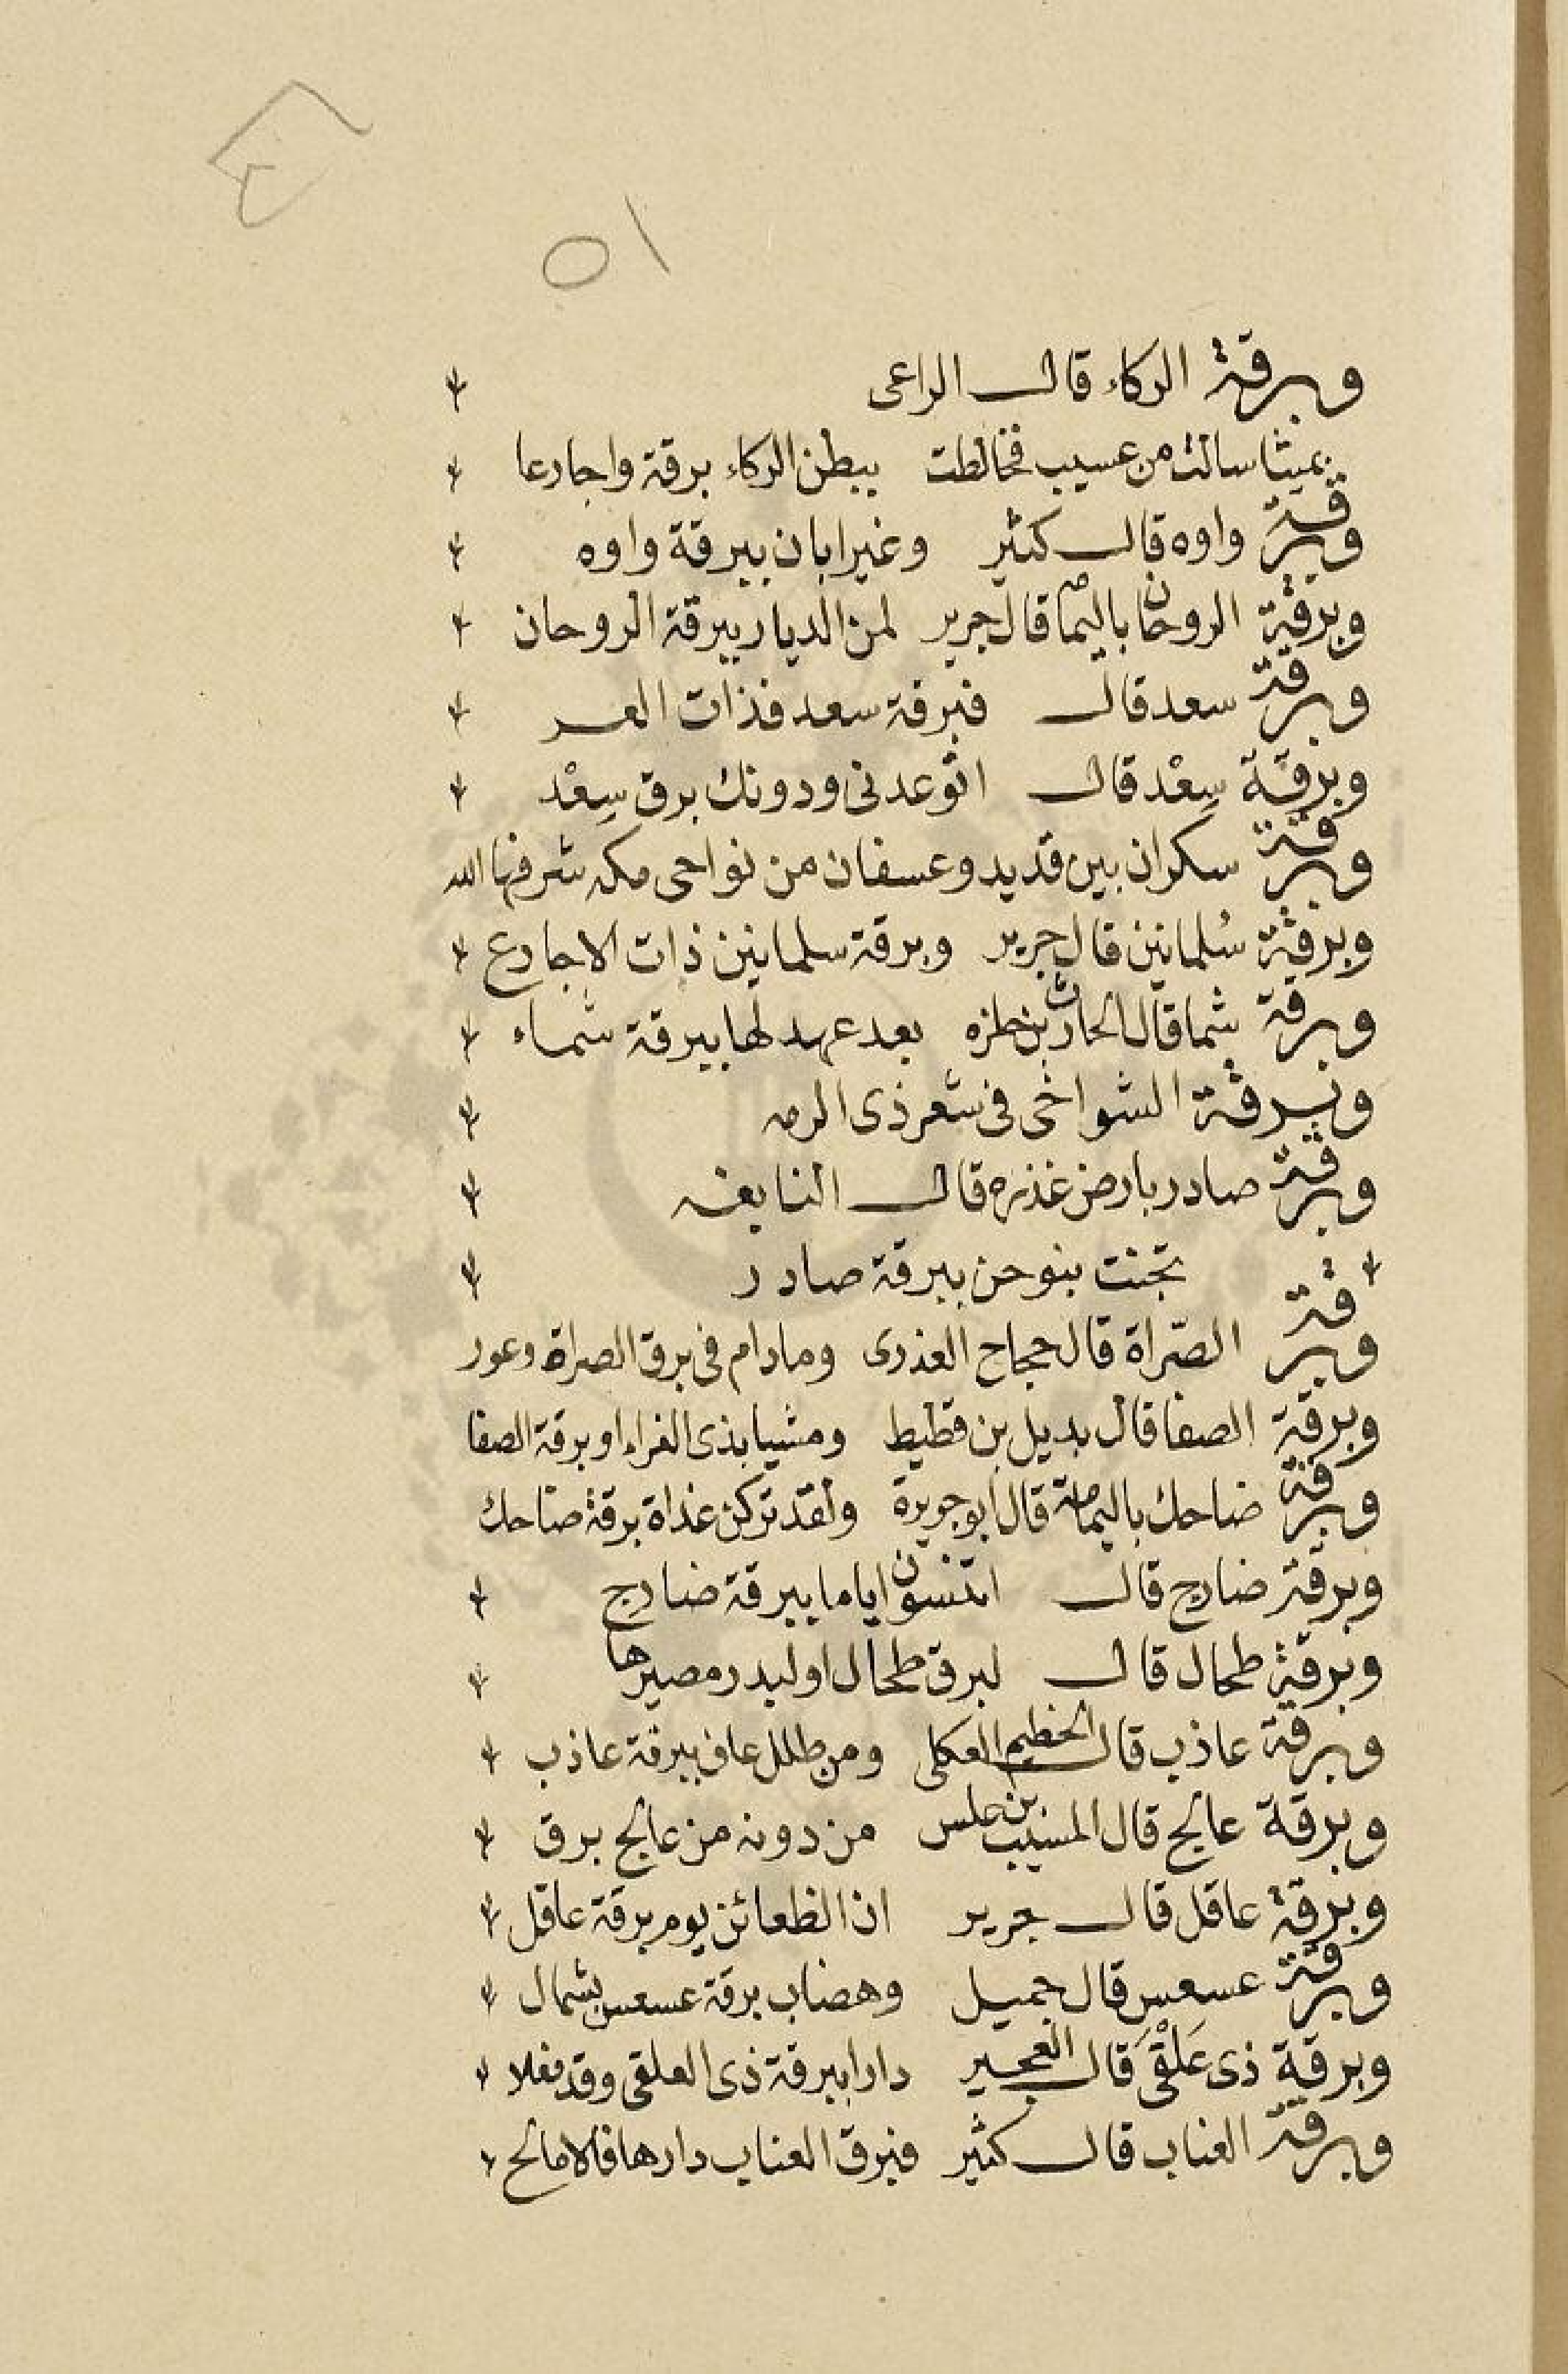 ٥١
وبرقة الركاء قال الراعى
بميثا سالت من عسيب فخالطت ببطن الركاء برقة واجارعا
وبرقة واوه قال كثير وغيرابان ببرقة واوه
وبرقة الروحان باليمامه قال جرير لمن الديار ببرقة الروحان
وبرقة سعد قال فبرقة سعد فذات العسر
وبرقة سِعْد قال اتوعدنى ودونك برق سِعْد
وبرقة سكران بين قديد وعسفان من نواحى مكه شرفها الله
وبرقة سُلمانين قال جرير وبرقة سلمانين ذات الاجارع
وبرقة شما قال الحارث بن حلزه بعد عهد لها ببرقة شماء
وبرقة الشواخى فى شعر ذى الرمه
وبرقة صادر بارض عذره قال النابغه
تجنت بنو حن ببرقة صادر
وبرقة الصّراة قال حجاح العذرى ومادام فى برق الصراة وعور
وبرقة الصفا قال بديل بن قطيط ومشيا بذى الغراء او برقة الصفا
وبرقة ضاحك باليمامة قال ابو جويرة ولقد تركن غداة برقة ضاحك
وبرقة ضارج قال اتنسون اياما ببرقة ضارج
وبرقة طحال قال لبرق طحال او لبدر مصيرها
وبرقة عاذب قال الخطيم العكلى ومن طلل عاف ببرقة عاذب
وبرقة عالج قال المسيب بن علس من دونه من عالج برق
وبرقة عاقل قال جرير ان الظعائن يوم برقة عاقل
وبرقة عسعس قال جميل وهضاب برقة عسعس بشمال
وبرقة ذى عَلْقَى قال العجير دارا ببرقة ذى العلقى وقد فعلا
وبرقة العناب قال كثير فبرق العناب دارها فالامالح